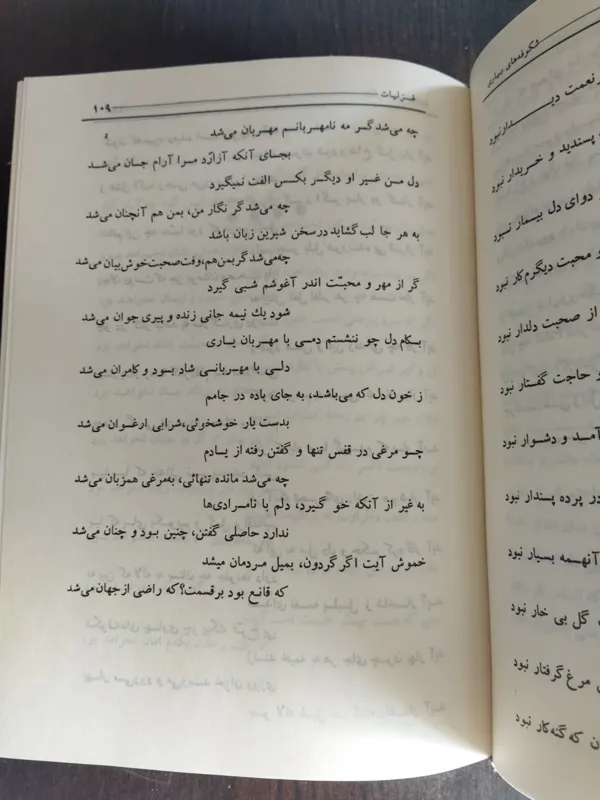 شکرفه‌های بهاری
غزلیات
۱۰۹
چه می‌شد گر مه نامهربانم مهربان می‌شد
بجای آنکه آزارد مرا آرام جان می‌شد
دل من غیر او دیگر بکس الفت نمیگیرد
چه می‌شد گر نگار من، بمن هم آنچنان می‌شد
به هر جا لب گشاید در سخن شیرین زبان باشد
چه‌می‌شد گر بمن هم، وقت صحبت خوش‌بیان می‌شد
گر از مهر و محبّت اندر آغوشم شبی گیرد
شود یك نیمه جانی زنده و پیری جوان می‌شد
بکام دل چو ننشستم دمی با مهربان یاری
دلی با مهربانی شاد بسود و کامران می‌شد
ز خون دل که می‌باشد، به جای باده در جامم
بدست یار خوشخوئی، شرابی ارغوان می‌شد
چو مرغی در قفس تنها و گفتن رفته از یادم
چه می‌شد مانده تنهائی، به‌مرغی همزبان می‌شد
به غیر از آنکه خو گیرد، دلم با نامرادی‌ها
ندارد حاصلی گفتن، چنین بود و چنان می‌شد
خموش آیت اگر گردون، بمیل مردمان میشد
که قانع بود برقسمت؟ که راضی از جهان می‌شد
نعمت دیدار نبود
پسندید و خریدار نبود
دوای دل بیمار نبود
و محبت دیگرم کار نبود
از صحبت دلدار نبود
و حاجت گفتار نبود
آمد و دشوار نبود
در پرده پسندار نبود
آنهمه بسیار نبود
گل بی خار نبود
مرغ گرفتار نبود
که گنه‌کار نبود